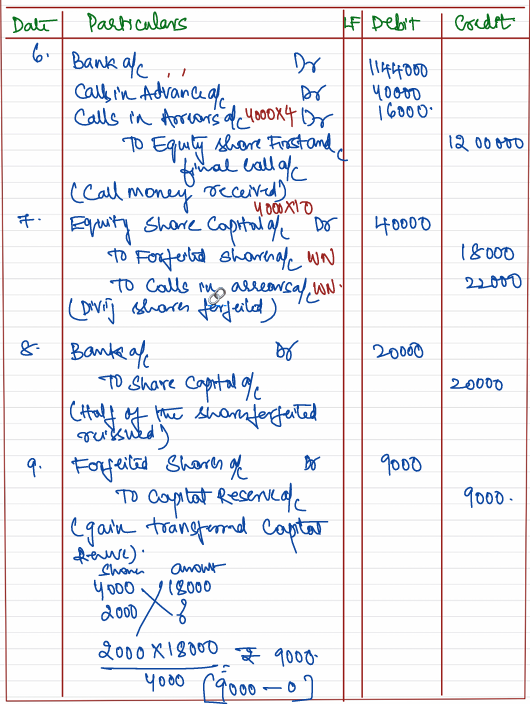 Date Particulars LF Debit Credit
6. Bank a/c Dr 1144000
Calls in Advance a/c Dr 40000
Calls in Arrears a/c 4000X4 Dr 16000.
To Equity share First and 1200000
final call a/c
(Call money received)
4000X10
7. Equity Share Capital a/c Dr 40000
To Forfeited shares a/c WN 18000
To Calls in arrears a/c WN. 22000
(Divij shares forfeited)
8. Bank a/c Dr 20000
To Share Capital a/c 20000
(Half of the shares forfeited
reissued)
9. Forfeited Shares a/c Dr 9000
To Capital Reserve a/c 9000.
(gain transferred Capital
Reserve).
Shares amount
4000 18000
2000 ?
2000 X 18000 = ₹ 9000.
4000 [9000 - 0]